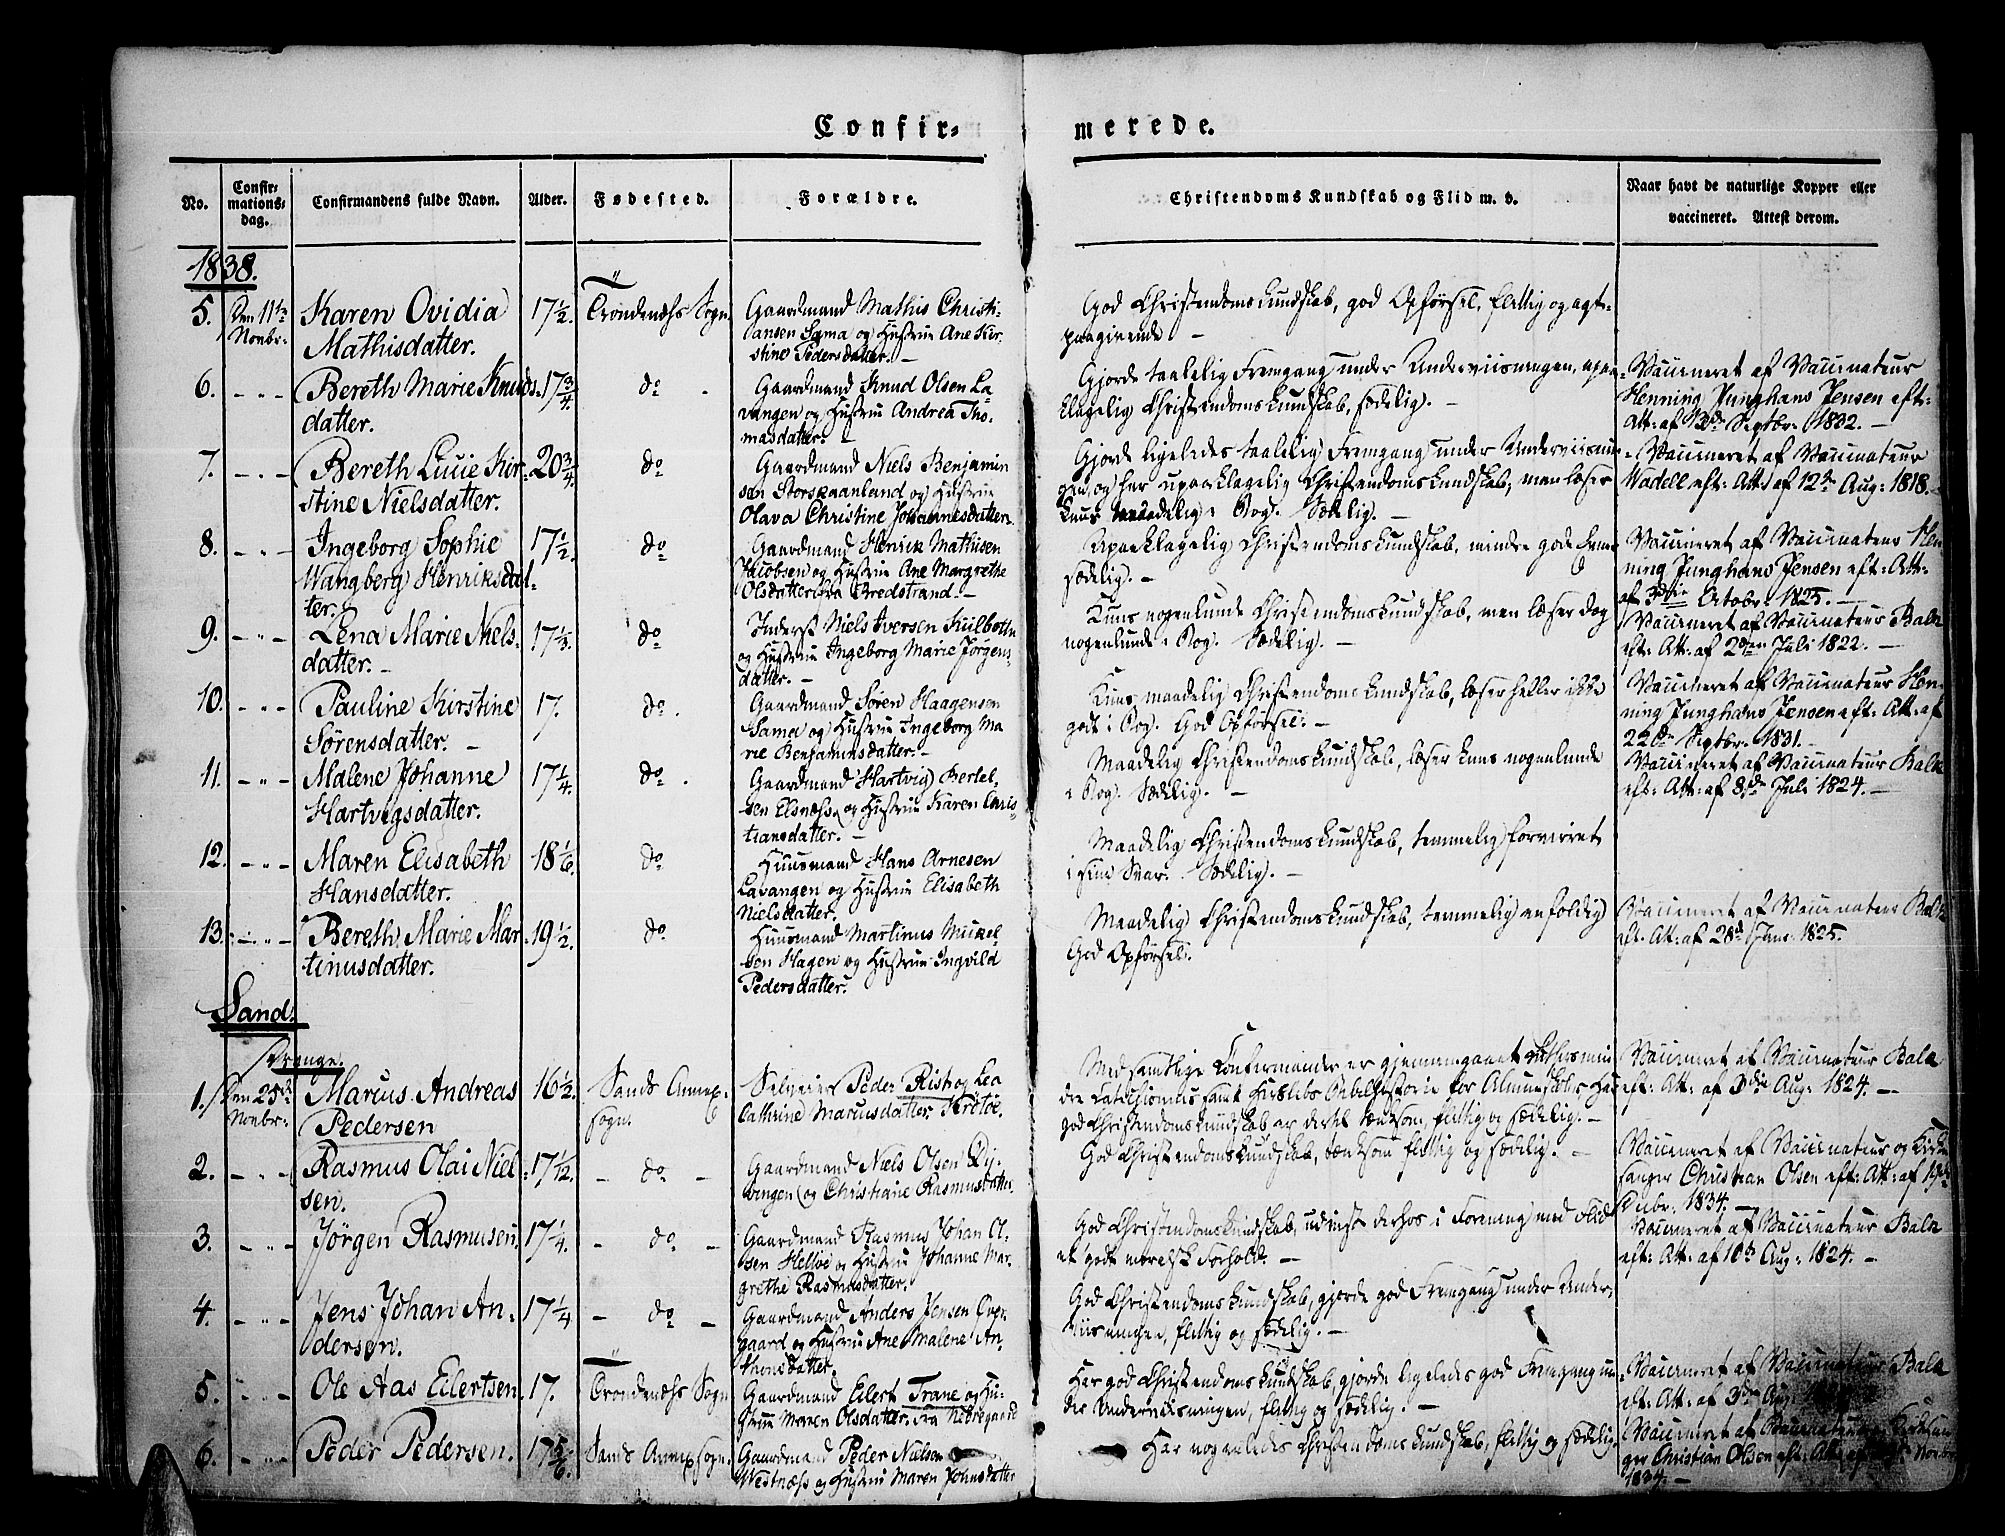 Confir=
merede.
No.
Confir=
mations=
dag.
Confirmandens fulde Navn.
Alder.
Fødested.
Forældre.
Christendoms Kundskab og Flid m. v.
Naar havt de naturlige Kopper eller
vaccineret. Attest derom.
1838.
5. Den 11te Novbr: Karen Ovidia 17 1/2. Trondenæhs Sogn. Gaardmand Mathis Christi-
Mathisdatter. ansen Sama og Hustrue Ane Kir-
stine Pedersdatter. —
God Christendomskundskab, god Opførsel, flittig og agt-
paagivende —
6. — " — Bereth Marie Knuds- 17 3/4. do Gaardmand Knud Olsen La-
datter. vangen og Hustrue Andrea Tho-
masdatter. —
Gjorde taalelig Fremgang under Underviisningen, upaa-
klagelig Christendomskundskab, sædelig. —
Vaccineret af Vaccinateur
Henning Junghans Jensen eft:
Att: af Septbr. 1832. —
7. — " — Bereth Lucie Kir- 20 3/4. do Gaardmand Niels Benjamin
stine Nielsdatter. sen Storskaanland og Hustrue
Olava Christine Johannesdatter.
Gjorde ligeledes taalelig Fremgang under Underviisnin-
gen, og har upaaklagelig Christendomskundskab, men læser
kuns maadelig i Bog. Sædelig. —
Vaccineret af Vaccinateur
Wadell eft: Att: af 12te Aug: 1818. —
8. — " — Ingeborg Sophie 17 1/2. do Gaardmand Henrick Mathisen
Wangberg Henriksdat- Jacobsen og Hustrue Ane Margrethe
ter. Olsdatter fra Bredstrand. —
Upaaklagelig Christendomskundskab, mindre gode Evner
sædelig. —
Vaccineret af Vaccinateur Hen
ning Junghans Jensen eft: Att:
af 3die Octobr: 1825. —
9. — " — Lena Marie Niels- 17 1/3. do Inderst Niels Iversen Kulbotn
datter. — og Hustrue Ingeborg Marie Jørgens-
datter. —
Kuns nogenlunde Christendomskundskab, men læser dog
nogenlunde i Bog. Sædelig. —
Vaccineret af Vaccinateur Balk
eft: Att: af 2den Juli 1822. —
10. — " — Pauline Kirstine 17. do. Gaardmand Søren Haagensen
Sørensdatter. — Sama og Hustrue Ingeborg Ma
rie Benjaminsdatter. —
Kuns maadelig Christendomskundskab, læser heller ikke
godt i Bog. God Opførsel. —
Vaccineret af Vaccinateur Hen-
ning Junghans Jensen eft: Att: af
22de Septbr. 1831. —
11. — " — Malene Johanne 17 1/4. do. Gaardmand Hartvig Bertel-
Hartvigsdatter. sen Elsnæhs og Hustrue Karen Chris-
tiansdatter. —
Maadelig Christendomskundskab, læser kuns nogenlunde
i Bog. Sædelig. —
Vaccineret af Vaccinateur Balk
eft: Att: af 8de Juli 1824. —
12. — " — Maren Elisabeth 18 1/6. do Huusmand Hans Arnesen
Hansdatter. Lavangen og Hustrue Elisabeth
Nielsdatter.
Maadelig Christendomskundskab, temmelig forvirret
i sine Svar. Sædelig. —
13. — " — Bereth Marie Mar 19 1/2. do Huusmand Martinus Mickel
tinusdatter. sen Hagen og Hustrue Ingvild
Pedersdatter.
Maadelig Christendomskundskab, temmelig enfoldig
God Opførsel.
Vaccineret af Vaccinateur Balk
eft: Att: af 28de Jan: 1825.
Sand.
Drenge.
1. Den 25de Novbr: Marcus Andreas 16 1/2. Sands Annex- Selveier Peder Rist og Lea
Pedersen sogn. Cathrine Marcusdatter. Krøtøe.
Med samtlige Confirmander er gjennemgaaet Luthers min
dre Catechismus samt Bibelhistorie for Almueskoler. Har
god Christendomskundskab er dertil tænksom, flittig og sædelig. —
Vaccineret af Vaccinateur Balk
eft: Att: af 3die Aug: 1824. —
2. — " — Rasmus Olai Niel 17 1/12. — do — Gaardmand Niels Olsen
sen. og Christiane Rasmusdatter.
God Christendomskundskab, tænksom flittig og sædelig. —
Vaccineret af Vaccinateur og Kirke
sanger Christian Olsen eft: Att: af 19de
1834. —
3. — " — Jørgen Rasmusen. 17 1/4. — do — Gaardmand Rasmus Johan Ol
sen Hellvø og Hustrue Johanne Mar
grethe Rasmusdatter.
God Christendomskundskab, udviist derhos i Forening med Flid
et godt moralsk Forhold. —
Vaccineret af Vaccinateur Balk
eft: Att: af 10de Aug: 1824. —
4. — " — Jens Johan An- 17 1/4 — do — Gaardmand Anders Jensen Over
dersen. gaard og Hustrue Ane Malene An
thonsdatter
God Christendomskundskab, gjorde god Fremgang under Under-
viisningen, flittig og sædelig. —
5. — " — Ole Aas Eilertsen 17. Trondenæhs Sogn Gaardmand Eilert Trane og Hu-
strue Maren Olsdatter. fra Nebregaard
Har god Christendomskundskab, gjorde ligeledes god Fremgang un
der Underviisningen, flittig og sædelig. —
Vaccineret af Vaccinateur Balk
eft: Att: af 3die Aug:
6. — " — Peder Pedersen. 17 5/6. Sands Annexsogn. Gaardmand Peder Nielsen
Westnæhs og Hustrue Maren Johnsdatter
Har nogenledes Christendomskundskab, flittig og sædelig
Vaccineret af Vaccinateur og Kirkesan
ger Christian Olsen eft: Att: af Novbr
1834. —